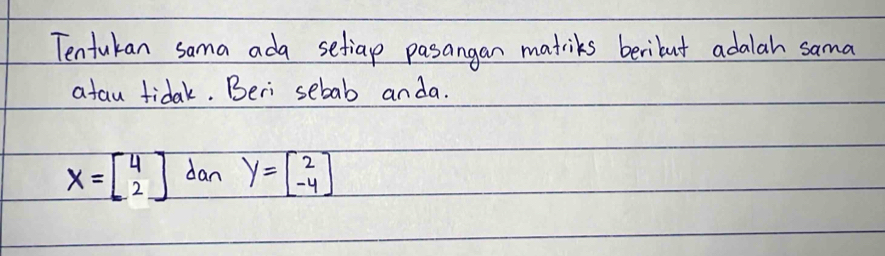 Tentukan sama ada setiap pasangan matriks berikut adalah sama
atau tidak. Beri sebab anda.
X = [4 2] dan Y = [2 -4]